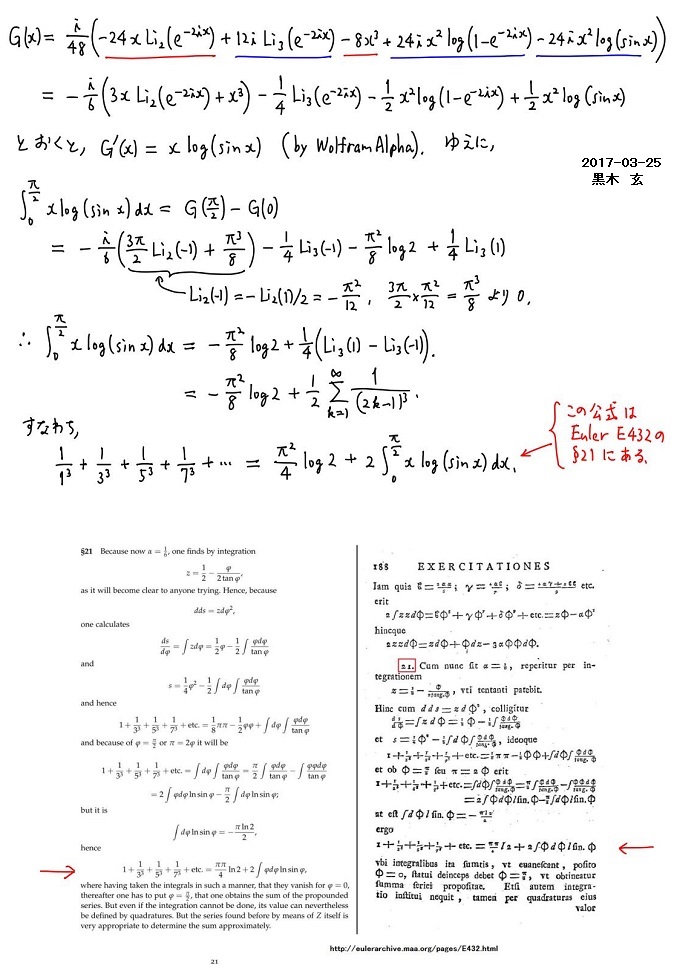 G(x) = i/48 (-24x Li₂(e^{-2ix}) + 12i Li₃(e^{-2ix}) - 8x³ + 24ix² log(1-e^{-2ix}) - 24ix² log(sin x))
= -i/6 (3x Li₂(e^{-2ix}) + x³) - 1/4 Li₃(e^{-2ix}) - 1/2 x² log(1-e^{-2ix}) + 1/2 x² log(sin x)
とおくと, G'(x) = x log(sin x) (by WolframAlpha). ゆえに,
2017-03-25
黒木 玄
∫₀^{π/2} x log(sin x) dx = G(π/2) - G(0)
= -i/6 (3π/2 Li₂(-1) + π³/8) - 1/4 Li₃(-1) - π²/8 log 2 + 1/4 Li₃(1)
Li₂(-1) = -Li₂(1)/2 = -π²/12, 3π/2 × π²/12 = π³/8 より 0,
∴ ∫₀^{π/2} x log(sin x) dx = -π²/8 log 2 + 1/4 (Li₃(1) - Li₃(-1)).
= -π²/8 log 2 + 1/2 Σ_{k=1}^∞ 1/(2k-1)³.
すなわち,
1/1³ + 1/3³ + 1/5³ + 1/7³ + ⋯ = π²/4 log 2 + 2∫₀^{π/2} x log(sin x) dx,
この公式は
Euler E432の
§21 にある.
§21 Because now α = 1/6, one finds by integration
z = 1/2 - φ/(2 tan φ),
as it will become clear to anyone trying. Hence, because
dds = zdφ²,
one calculates
ds/dφ = ∫ zdφ = 1/2 φ - 1/2 ∫ φdφ/tan φ
and
s = 1/4 φ² - 1/2 ∫ dφ ∫ φdφ/tan φ
and hence
1 + 1/3³ + 1/5³ + 1/7³ + etc. = 1/8 ππ - 1/2 φφ + ∫ dφ ∫ φdφ/tan φ
and because of φ = π/2 or π = 2φ it will be
1 + 1/3³ + 1/5³ + 1/7³ + etc. = ∫ dφ ∫ φdφ/tan φ = π/2 ∫ φdφ/tan φ - ∫ φφdφ/tan φ
= 2 ∫ φdφ ln sin φ - π/2 ∫ dφ ln sin φ;
but it is
∫ dφ ln sin φ = - π ln 2/2,
hence
1 + 1/3³ + 1/5³ + 1/7³ + etc. = ππ/4 ln 2 + 2 ∫ φdφ ln sin φ,
where having taken the integrals in such a manner, that they vanish for φ = 0,
thereafter one has to put φ = π/2, that one obtains the sum of the propounded
series. But even if the integration cannot be done, its value can nevertheless
be defined by quadratures. But the series found before by means of Z itself is
very appropriate to determine the sum approximately.
21
188 EXERCITATIONES
Iam quia etc.
erit
2∫zzdΦ = etc. = zΦ - αΦ³
hincque
2zzdΦ = zdΦ + Φdz - 3αΦΦdΦ.
21. Cum nunc sit α = 1/6, reperitur per in-
tegrationem
z = 1/2 - Φ/(2 tang. Φ), vti tentanti patebit.
Hinc cum dds = zdΦ², colligitur
ds/dΦ = ∫zdΦ = 1/2 Φ - 1/2 ∫ ΦdΦ/tang. Φ
et s = 1/4 Φ² - 1/2 ∫dΦ∫ ΦdΦ/tang. Φ, ideoque
1 + 1/3³ + 1/5³ + 1/7³ + etc. = 1/8 ππ - 1/2 ΦΦ + ∫dΦ∫ ΦdΦ/tang. Φ
et ob Φ = π/2 seu π = 2Φ erit
1 + 1/3³ + 1/5³ + 1/7³ + etc. = ∫dΦ∫ ΦdΦ/tang. Φ = π/2 ∫ ΦdΦ/tang. Φ - ∫ ΦΦdΦ/tang. Φ
= 2∫ΦdΦ l sin. Φ - π/2 ∫dΦ l sin. Φ
at est ∫dΦ l sin. Φ = - π l 2/2
ergo
1 + 1/3³ + 1/5³ + 1/7³ + etc. = ππ/4 l 2 + 2∫ΦdΦ l sin. Φ
vbi integralibus ita sumtis, vt euanescant, posito
Φ = 0, statui deinceps debet Φ = π/2, vt obtineatur
summa seriei propositae. Etsi autem integra-
tio institui nequit, tamen per quadraturas eius
valor
http://eulerarchive.maa.org/pages/E432.html